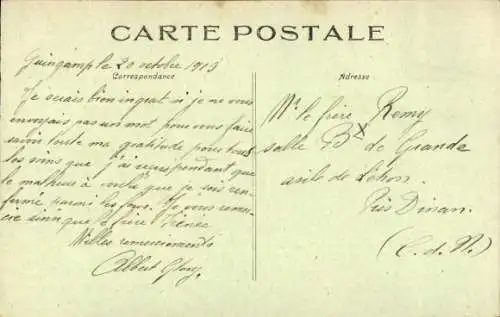 CARTE POSTALE
Guingamp le 20 octobre 1913
Correspondance
Je serais bien ingrat si je ne vous
envoyais pas un mot pour vous faire
savoir toute ma gratitude pour tous
les soins que j'ai reçus pendant que
le malheur à voulu que je sois ren-
fermé parmi les fous. Je vous remer-
cie ainsi que le frère
Milles remerciements
Albert
Adresse
Mr le frère Remy
salle Bx de Grande
asile de Léhon
Près Dinan.
(C. d. N.)